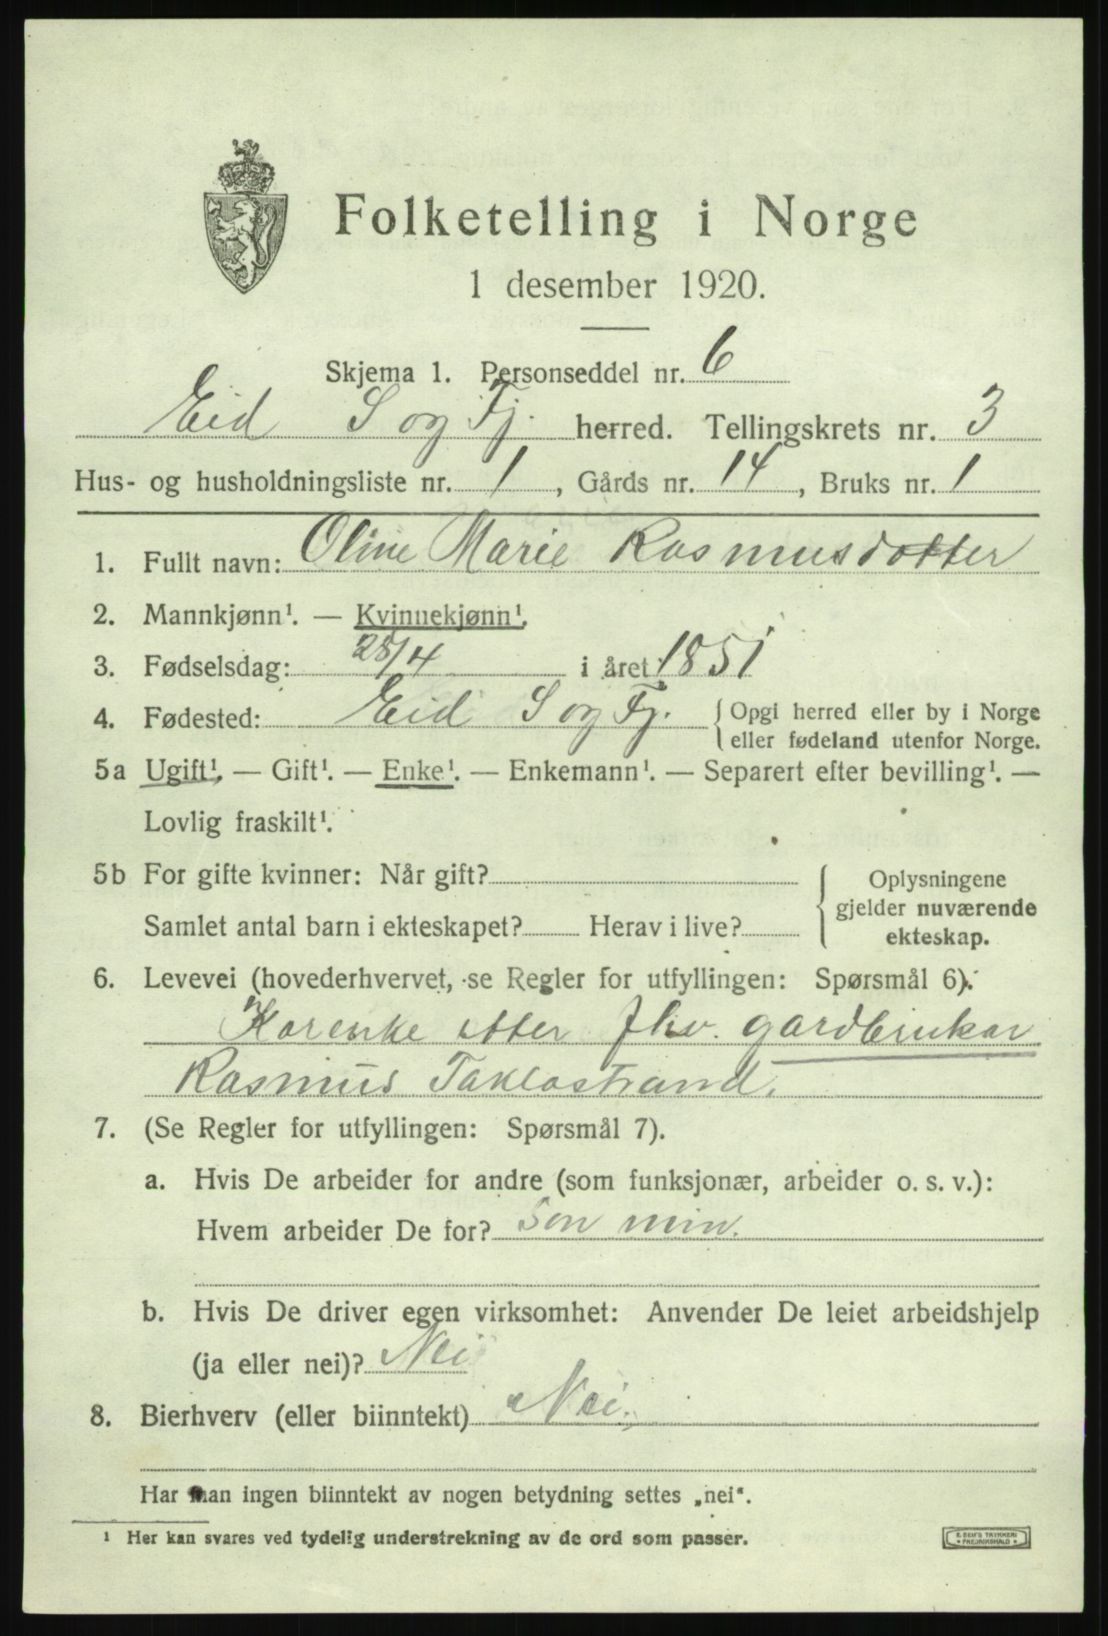 Folketelling i Norge
1 desember 1920.
Skjema 1. Personseddel nr. 6
Eid S og Fj. herred. Tellingskrets nr. 3
Hus- og husholdningsliste nr. 1, Gårds nr. 14, Bruks nr. 1
1. Fullt navn: Oline Marie Rasmusdotter
2. Mannkjønn¹. — Kvinnekjønn¹.
3. Fødselsdag: 28/4 i året 1851
4. Fødested: Eid S og Fj. { Opgi herred eller by i Norge
eller fødeland utenfor Norge.
5a Ugift¹. — Gift¹. — Enke¹. — Enkemann¹. — Separert efter bevilling¹. —
Lovlig fraskilt¹.
5b For gifte kvinner: Når gift?
Samlet antal barn i ekteskapet? Herav i live?
{ Oplysningene
gjelder nuværende
ekteskap.
6. Levevei (hovederhvervet, se Regler for utfyllingen: Spørsmål 6).
Kårenke etter fhv. gardbrukar
Rasmus Taklostrand.
7. (Se Regler for utfyllingen: Spørsmål 7).
a. Hvis De arbeider for andre (som funksjonær, arbeider o. s. v.):
Hvem arbeider De for? Son min.
b. Hvis De driver egen virksomhet: Anvender De leiet arbeidshjelp
(ja eller nei)? Nei
8. Bierhverv (eller biinntekt) Nei.
Har man ingen biinntekt av nogen betydning settes „nei“.
¹ Her kan svares ved tydelig understrekning av de ord som passer.